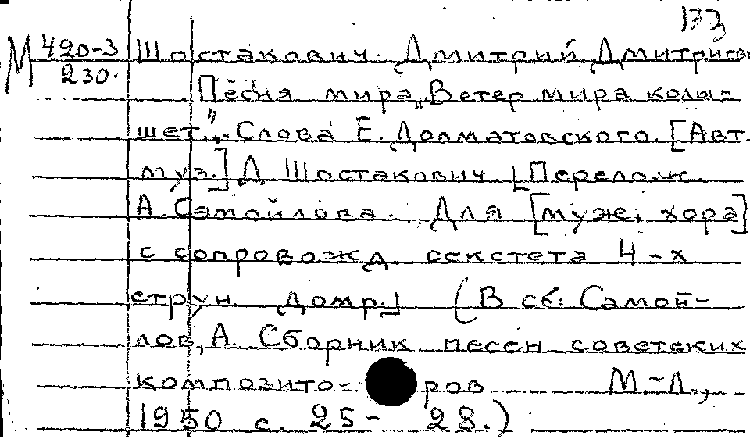 133
М 420-3
230.
Шостакович Дмитрий Дмитриев
Песня мира „Ветер мира колы-
шет". Слова Е. Долматовского. [Авт.
муз.] Д Шостакович. [Перелож.
А. Самойлова. Для [муж. хора]
с сопровожд. секстета 4-х
струн. домр.] (В сб: Самой-
лов, А. Сборник песен советских
композито- ров М-Л.,
1950 с. 25- 28.)